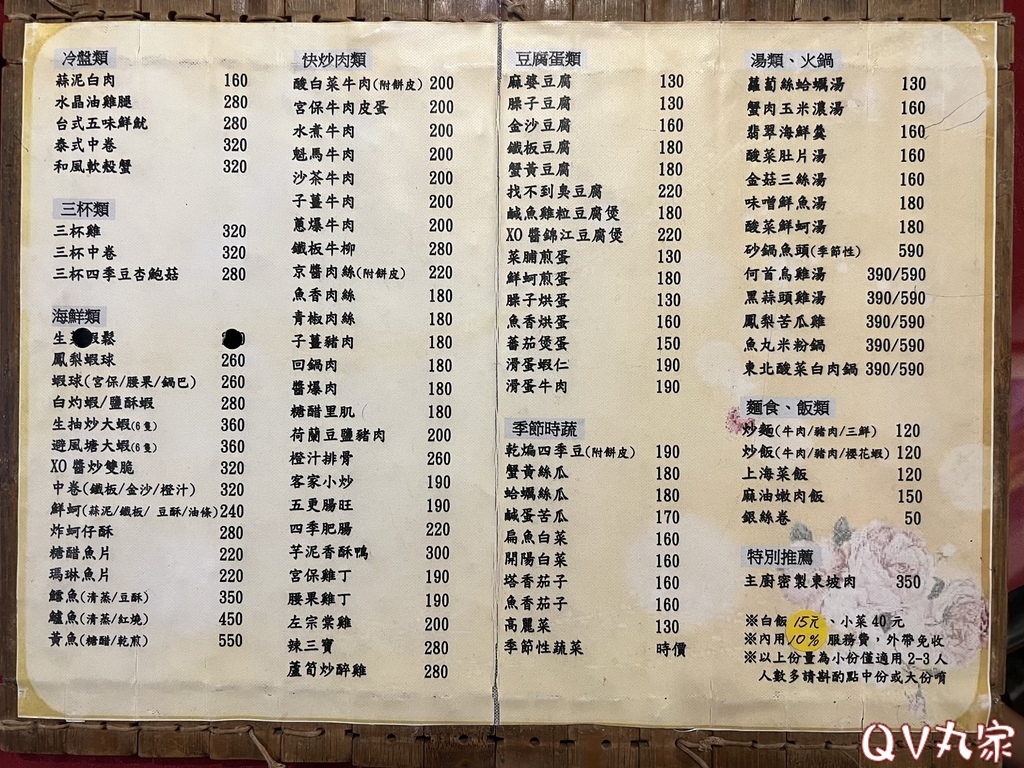 冷盤類
蒜泥白肉 160
水晶油雞腿 280
台式五味鮮魷 280
泰式中卷 320
和風軟殼蟹 320
三杯類
三杯雞 320
三杯中卷 320
三杯四季豆杏鮑菇 280
海鮮類
生 蝦鬆
鳳梨蝦球 260
蝦球(宮保/腰果/鍋巴) 260
白灼蝦/鹽酥蝦 280
生抽炒大蝦(6隻) 360
避風塘大蝦(6隻) 360
XO醬炒雙脆 320
中卷(鐵板/金沙/橙汁) 320
鮮蚵(蒜泥/鐵板/ 豆酥/油條)240
炸蚵仔酥 280
糖醋魚片 220
瑪琳魚片 220
鱈魚(清蒸/豆酥) 350
鱸魚(清蒸/紅燒) 450
黃魚(糖醋/乾煎) 550
快炒肉類
酸白菜牛肉(附餅皮) 200
宮保牛肉皮蛋 200
水煮牛肉 200
魁馬牛肉 200
沙茶牛肉 200
子薑牛肉 200
蔥爆牛肉 200
鐵板牛柳 280
京醬肉絲(附餅皮) 220
魚香肉絲 180
青椒肉絲 180
子薑豬肉 180
回鍋肉 180
醬爆肉 180
糖醋里肌 180
荷蘭豆鹽豬肉 200
橙汁排骨 260
客家小炒 190
五更腸旺 190
四季肥腸 220
芋泥香酥鴨 300
宮保雞丁 190
腰果雞丁 190
左宗棠雞 200
辣三寶 280
蘆筍炒醉雞 280
豆腐蛋類
麻婆豆腐 130
臊子豆腐 130
金沙豆腐 160
鐵板豆腐 180
蟹黃豆腐 180
找不到臭豆腐 220
鹹魚雞粒豆腐煲 180
XO醬錦江豆腐煲 220
菜脯煎蛋 130
鮮蚵煎蛋 180
臊子烘蛋 130
魚香烘蛋 160
蕃茄煲蛋 150
滑蛋蝦仁 190
滑蛋牛肉 190
季節時蔬
乾煸四季豆(附餅皮) 190
蟹黃絲瓜 180
蛤蠣絲瓜 180
鹹蛋苦瓜 170
扁魚白菜 160
開陽白菜 160
塔香茄子 160
魚香茄子 160
高麗菜 130
季節性蔬菜 時價
湯類、火鍋
蘿蔔絲蛤蠣湯 130
蟹肉玉米濃湯 160
翡翠海鮮羹 160
酸菜肚片湯 160
金菇三絲湯 160
味噌鮮魚湯 180
酸菜鮮蚵湯 180
砂鍋魚頭(季節性) 590
何首烏雞湯 390/590
黑蒜頭雞湯 390/590
鳳梨苦瓜雞 390/590
魚丸米粉鍋 390/590
東北酸菜白肉鍋 390/590
麵食、飯類
炒麵(牛肉/豬肉/三鮮) 120
炒飯(牛肉/豬肉/櫻花蝦) 120
上海菜飯 120
麻油嫩肉飯 150
銀絲卷 50
特別推薦
主廚密製東坡肉 350
※白飯15元、小菜40元
※內用10%服務費，外帶免收
※以上份量為小份僅適用2-3人
人數多請斟酌點中份或大份唷
QV丸家